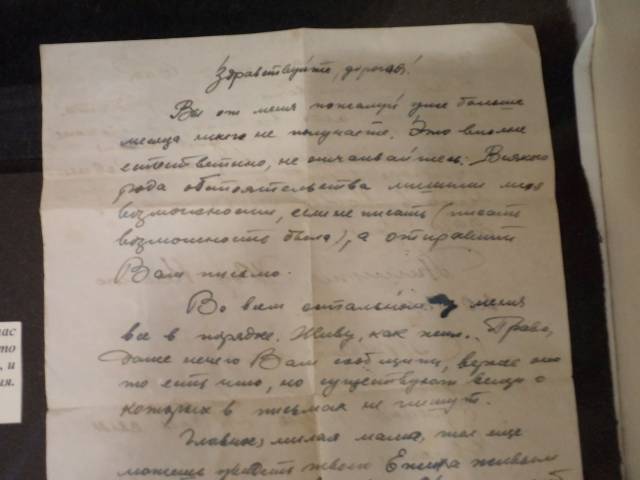 Здравствуйте, дорогая!
Вы от меня пожалуй уже больше
месяца ничего не получаете. Это вполне
естественно, не отчаивайтесь. Всякого
рода обстоятельства лишили меня
возможности, если не писать (писать
возможность была), а отправить
Вам письмо.
Во всем остальном у меня
все в порядке. Живу, как жил.. Право,
даже нечего Вам сообщить, вернее
то есть что, но существуют вещи о
которых в письмах не пишут.
Главное, милая мама, что еще
можешь увидеть твоего живым
нас
то
, и
ия.